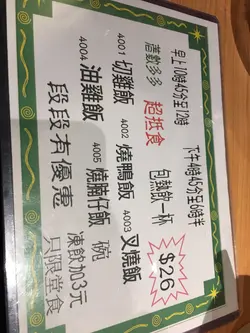 早上10時45分至12時
下午4時45分至6時半
舊數多多 超抵食 包熱飲一杯
$26
4001 切雞飯 4002 燒鴨飯 4003 叉燒飯
4004 油雞飯 4005 燒腩仔飯 碗
凍飲加3元
段段有優惠 只限堂食